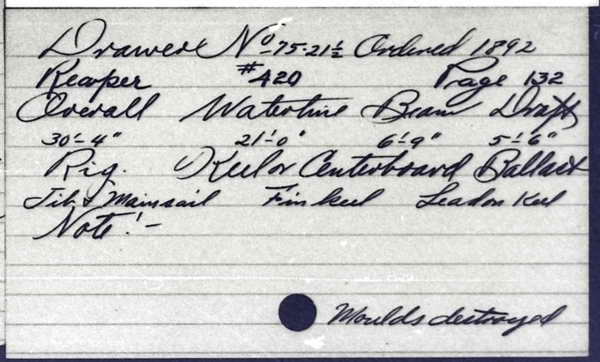 Drawer No 75-21½ Ordered 1892
Reaper #420 Page 132
Overall Waterline Beam Draft
30'-4" 21'-0" 6'-9" 5'-6"
Rig. Keel or Centerboard Ballast
Jib & Mainsail Fin keel Lead on Keel
Note:-
Moulds destroyed